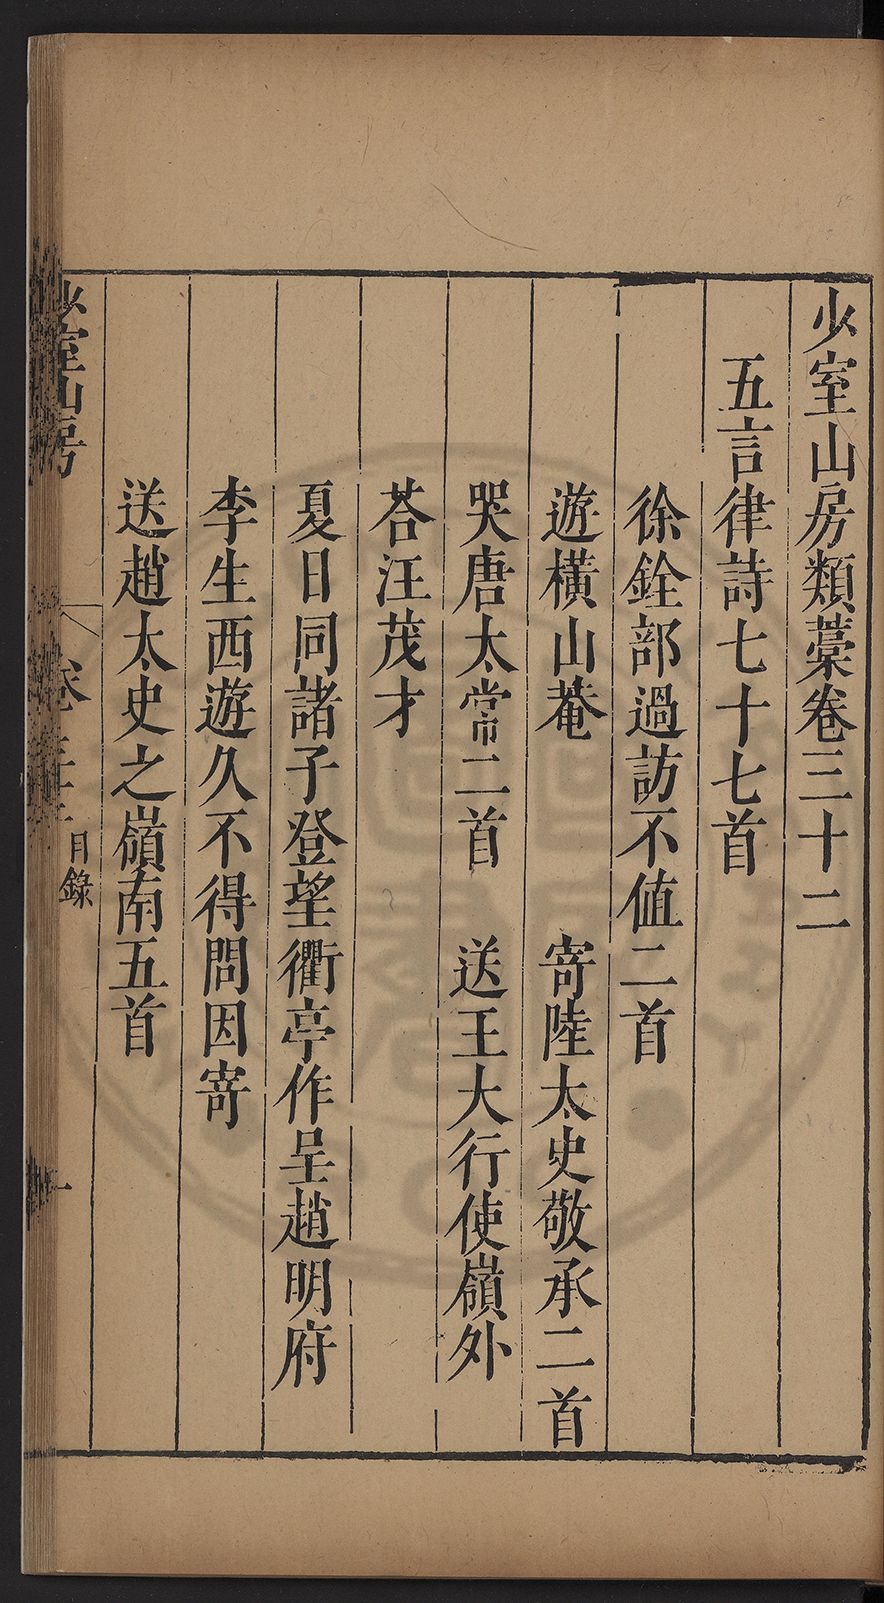 少室山房類藁卷三十二
五言律詩七十七首
徐銓部過訪不值二首
遊橫山菴　寄陸太史敬承二首
哭唐太常二首　送王大行使嶺外
荅汪茂才
夏日同諸子登望衢亭作呈趙明府
李生西遊久不得問因寄
送趙太史之嶺南五首
少室山房　卷三十二　目錄　一